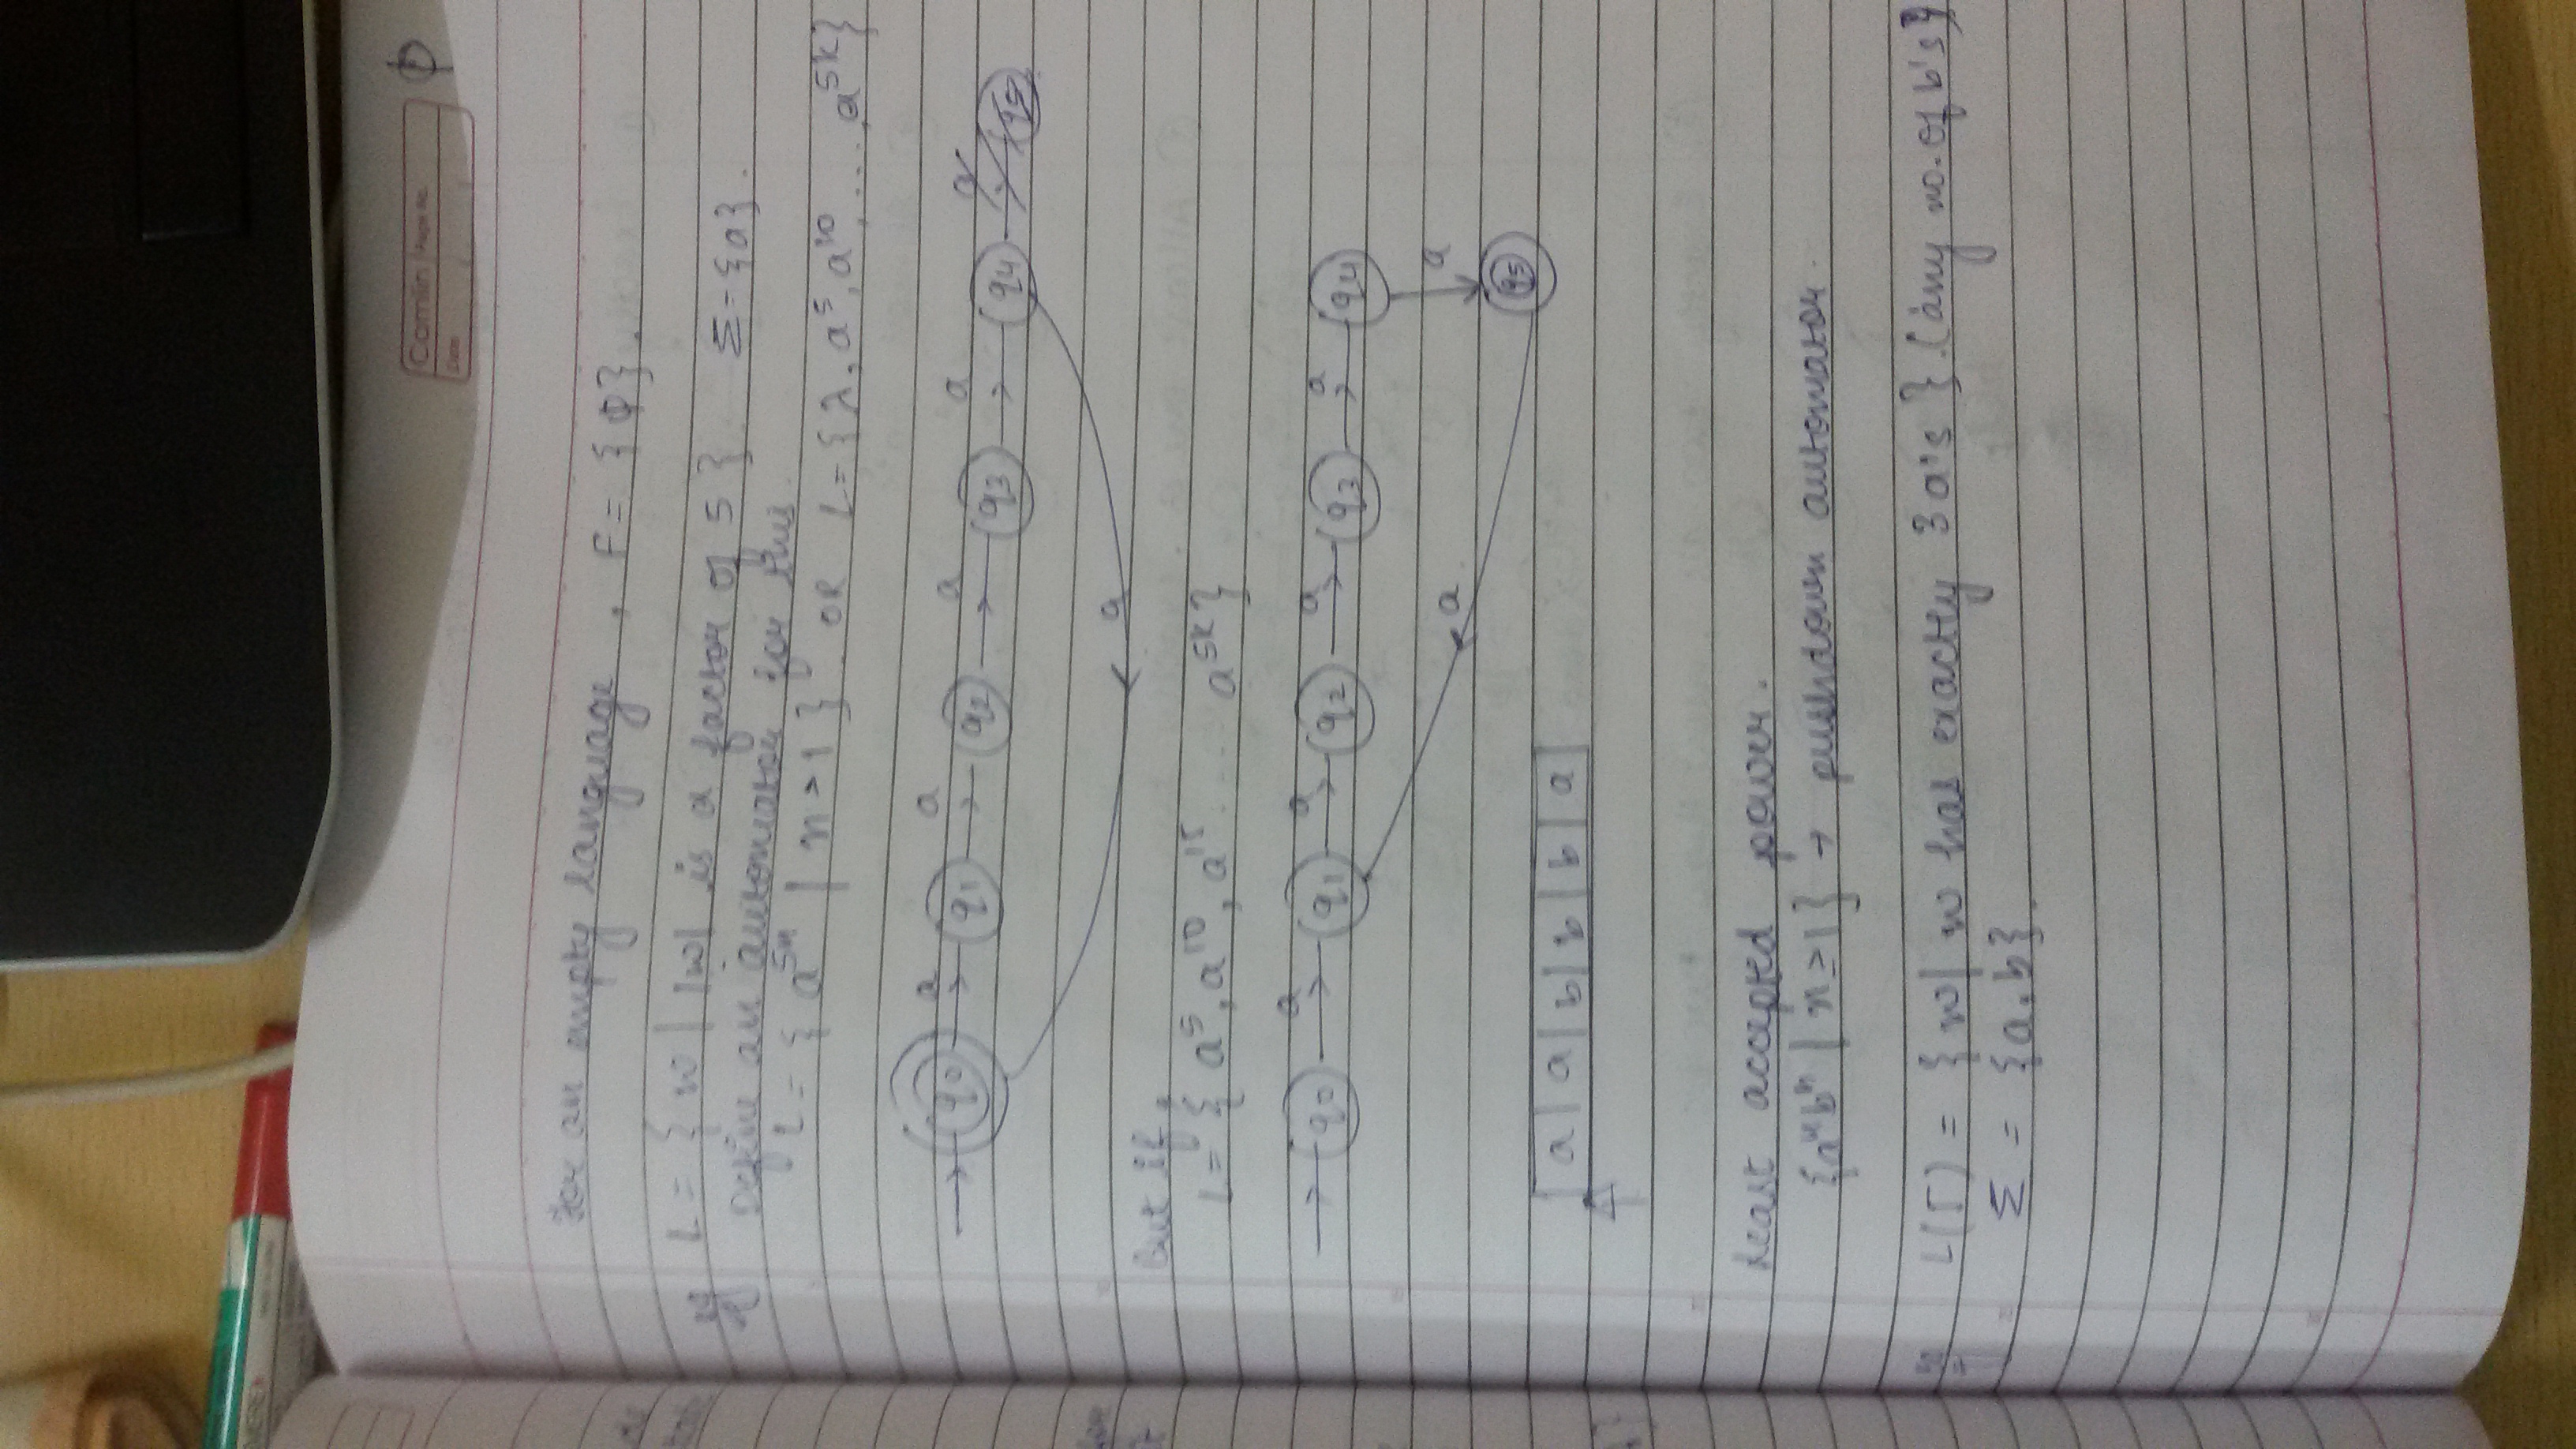 Camlin Page No.
Date
Φ
For an empty language , F = {Φ}.
eg L = { w | |w| is a factor of 5 } Σ = {a}.
Define an automaton for this.
L = { a^5n | n > 1 } OR L = {λ, a^5, a^10, ..., a^5k}
q0 a q1 a q2 a q3 a q4 a q5
a
But if,
L = { a^5, a^10, a^15 .... a^5k}
q0 a q1 a q2 a q3 a q4
a
a
q5
a a b b b a
Least accepted power.
{a^n b^n | n ≥ 1} → pushdown automaton.
eg L(Γ) = { w | w has exactly 3 a's }. (any no. of b's)
Σ = {a, b}.